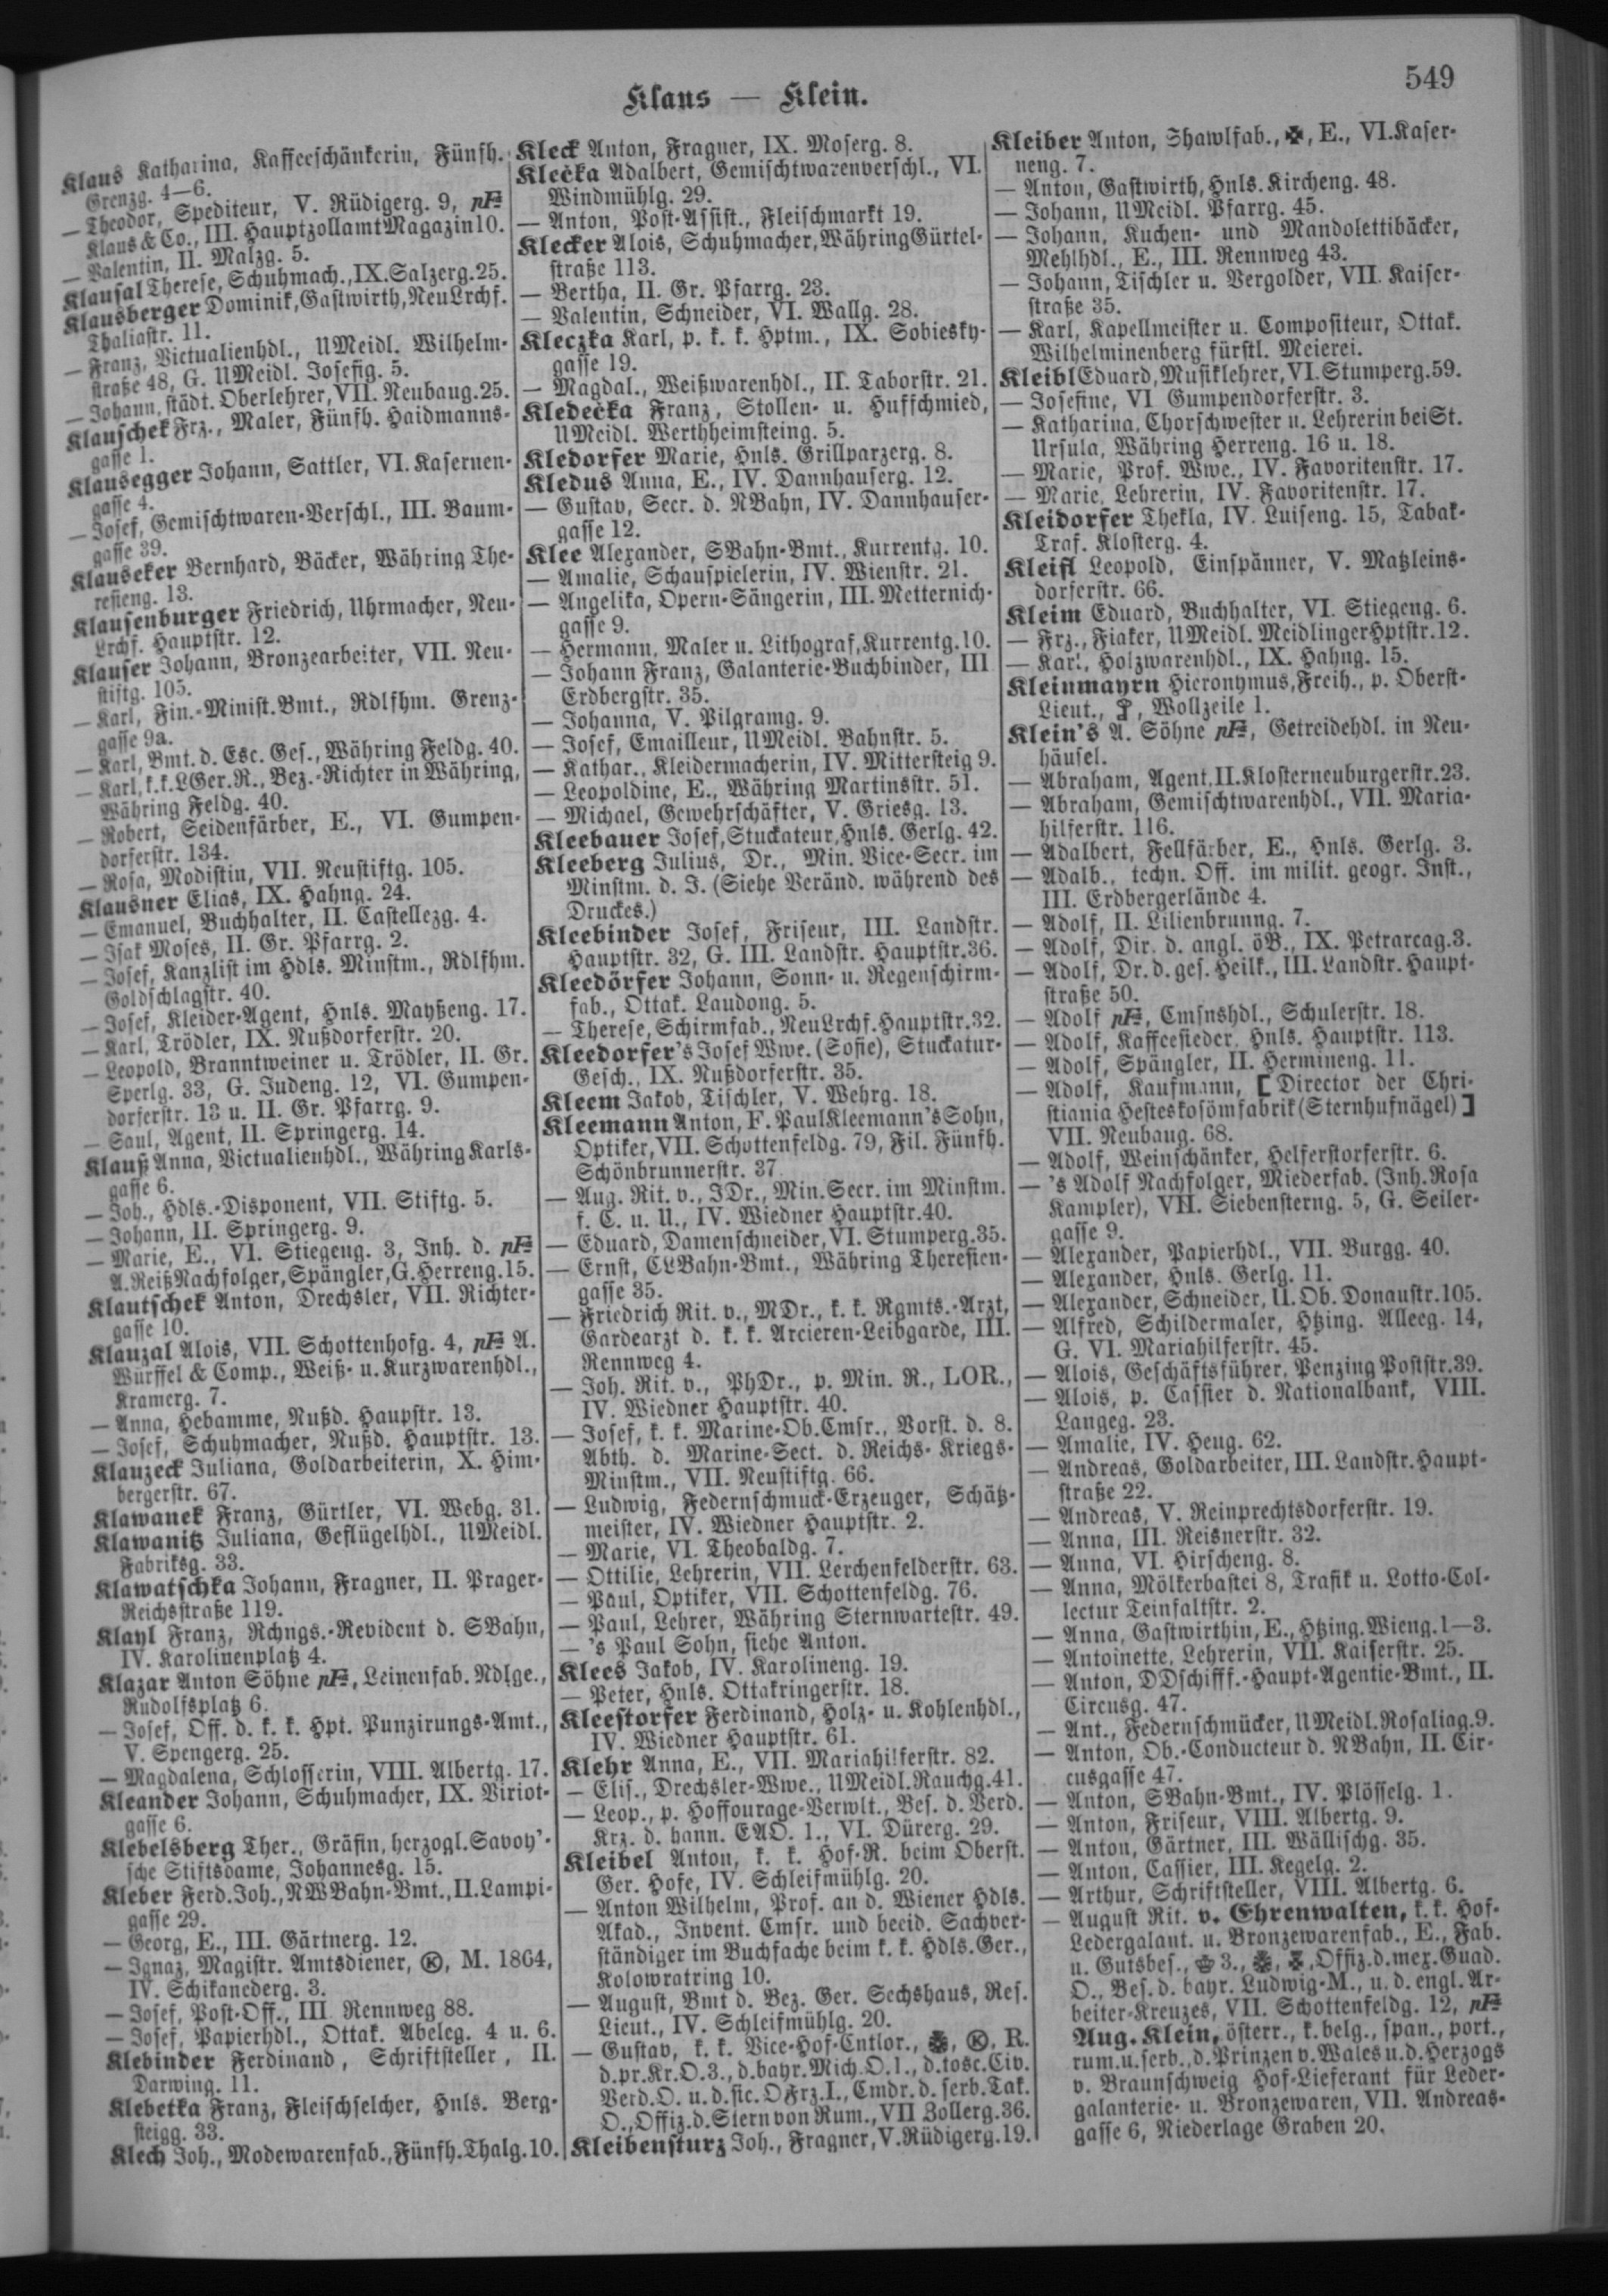 549
Klaus — Klein.
Klaus Katharina, Kaffeeschänkerin, Fünfh.
Grenzg. 4—6.
— Theodor, Spediteur, V. Rüdigerg. 9,
Klaus & Co., III. Hauptzollamt Magazin 10.
— Valentin, II. Malzg. 5.
Klausal Therese, Schuhmach., IX. Salzerg. 25.
Klausberger Dominik, Gastwirth, NeuLrchf.
Thaliastr. 11.
— Franz, Victualienhdl., UMeidl. Wilhelm-
straße 48, G. UMeidl. Josefig. 5.
— Johann, städt. Oberlehrer, VII. Neubaug. 25.
Klauschek Frz., Maler, Fünfh. Haidmanns-
gasse 1.
Klausegger Johann, Sattler, VI. Kasernen-
gasse 4.
— Josef, Gemischtwaren-Verschl., III. Baum-
gasse 39.
Klauseker Bernhard, Bäcker, Währing The-
resieng. 13.
Klausenburger Friedrich, Uhrmacher, Neu-
Lrchf. Hauptstr. 12.
Klauser Johann, Bronzearbeiter, VII. Neu-
stiftg. 105.
— Karl, Fin.-Minist. Bmt., Rdlfhm. Grenz-
gasse 9a.
— Karl, Bmt. d. Esc. Ges., Währing Feldg. 40.
— Karl, k. k. LGer. R., Bez.-Richter in Währing,
Währing Feldg. 40.
— Robert, Seidenfärber, E., VI. Gumpen-
dorferstr. 134.
— Rosa, Modistin, VII. Neustiftg. 105.
Klausner Elias, IX. Hahng. 24.
— Emanuel, Buchhalter, II. Castellezg. 4.
— Isak Moses, II. Gr. Pfarrg. 2.
— Josef, Kanzlist im Hdls. Minstm., Rdlfhm.
Goldschlagstr. 40.
— Josef, Kleider-Agent, Hnls. Mayßeng. 17.
— Karl, Trödler, IX. Nußdorferstr. 20.
— Leopold, Branntweiner u. Trödler, II. Gr.
Sperlg. 33, G. Judeng. 12, VI. Gumpen-
dorferstr. 13 u. II. Gr. Pfarrg. 9.
— Saul, Agent, II. Springerg. 14.
Klauß Anna, Victualienhdl., Währing Karls-
gasse 6.
— Joh., Hdls.-Disponent, VII. Stiftg. 5.
— Johann, II. Springerg. 9.
— Marie, E., VI. Stiegeng. 3, Inh. d.
A. Reiß Nachfolger, Spängler, G. Herreng. 15.
Klautschek Anton, Drechsler, VII. Richter-
gasse 10.
Klauzal Alois, VII. Schottenhofg. 4, A.
Würffel & Comp., Weiß- u. Kurzwarenhdl.,
Kramerg. 7.
— Anna, Hebamme, Nußd. Haupstr. 13.
— Josef, Schuhmacher, Nußd. Hauptstr. 13.
Klauzeck Juliana, Goldarbeiterin, X. Him-
bergerstr. 67.
Klawanek Franz, Gürtler, VI. Webg. 31.
Klawanitz Juliana, Geflügelhdl., UMeidl.
Fabriksg. 33.
Klawatschka Johann, Fragner, II. Prager-
Reichsstraße 119.
Klayl Franz, Rchngs.-Revident d. SBahn,
IV. Karolinenplatz 4.
Klazar Anton Söhne, Leinenfab. Ndlge.,
Rudolfsplatz 6.
— Josef, Off. d. k. k. Hpt. Punzirungs-Amt.,
V. Spengerg. 25.
— Magdalena, Schlosserin, VIII. Albertg. 17.
Kleander Johann, Schuhmacher, IX. Viriot-
gasse 6.
Klebelsberg Ther., Gräfin, herzogl. Savoy'-
sche Stiftsdame, Johannesg. 15.
Kleber Ferd. Joh., NWBahn-Bmt., II. Lampi-
gasse 29.
— Georg, E., III. Gärtnerg. 12.
— Ignaz, Magistr. Amtsdiener, Ⓚ, M. 1864,
IV. Schikanederg. 3.
— Josef, Post-Off., III Rennweg 88.
— Josef, Papierhdl., Ottak. Abeleg. 4 u. 6.
Klebinder Ferdinand, Schriftsteller, II.
Darwing. 11.
Klebetka Franz, Fleischselcher, Hnls. Berg-
steigg. 33.
Klech Joh., Modewarenfab., Fünfh. Thalg. 10.
Kleck Anton, Fragner, IX. Moserg. 8.
Klečka Adalbert, Gemischtwarenverschl., VI.
Windmühlg. 29.
— Anton, Post-Assist., Fleischmarkt 19.
Klecker Alois, Schuhmacher, Währing Gürtel-
straße 113.
— Bertha, II. Gr. Pfarrg. 23.
— Valentin, Schneider, VI. Wallg. 28.
Kleczka Karl, p. k. k. Hptm., IX. Sobiesky-
gasse 19.
— Magdal., Weißwarenhdl., II. Taborstr. 21.
Kledečka Franz, Stollen- u. Huffschmied,
UMeidl. Werthheimsteing. 5.
Kledorfer Marie, Hnls. Grillparzerg. 8.
Kledus Anna, E., IV. Dannhauserg. 12.
— Gustav, Secr. d. NBahn, IV. Dannhauser-
gasse 12.
Klee Alexander, SBahn-Bmt., Kurrentg. 10.
— Amalie, Schauspielerin, IV. Wienstr. 21.
— Angelika, Opern-Sängerin, III. Metternich-
gasse 9.
— Hermann, Maler u. Lithograf, Kurrentg. 10.
— Johann Franz, Galanterie-Buchbinder, III
Erdbergstr. 35.
— Johanna, V. Pilgramg. 9.
— Josef, Emailleur, UMeidl. Bahnstr. 5.
— Kathar., Kleidermacherin, IV. Mittersteig 9.
— Leopoldine, E., Währing Martinsstr. 51.
— Michael, Gewehrschäfter, V. Griesg. 13.
Kleebauer Josef, Stuckateur, Hnls. Gerlg. 42.
Kleeberg Julius, Dr., Min. Vice-Secr. im
Minstm. d. J. (Siehe Veränd. während des
Druckes.)
Kleebinder Josef, Friseur, III. Landstr.
Hauptstr. 32, G. III. Landstr. Hauptstr. 36.
Kleedörfer Johann, Sonn- u. Regenschirm-
fab., Ottak. Laudong. 5.
— Therese, Schirmfab., NeuLrchf. Hauptstr. 32.
Kleedorfer's Josef Wwe. (Sofie), Stuckatur-
Gesch., IX. Nußdorferstr. 35.
Kleem Jakob, Tischler, V. Wehrg. 18.
Kleemann Anton, F. Paul Kleemann's Sohn,
Optiker, VII. Schottenfeldg. 79, Fil. Fünfh.
Schönbrunnerstr. 37
— Aug. Rit. v., JDr., Min. Secr. im Minstm.
f. C. u. U., IV. Wiedner Hauptstr. 40.
— Eduard, Damenschneider, VI. Stumperg. 35.
— Ernst, CLBahn-Bmt., Währing Theresien-
gasse 35.
— Friedrich Rit. v., MDr., k. k. Rgmts.-Arzt,
Gardearzt d. k. k. Arcieren-Leibgarde, III.
Rennweg 4.
— Joh. Rit. v., PhDr., p. Min. R., LOR.,
IV. Wiedner Hauptstr. 40.
— Josef, k. k. Marine-Ob. Cmsr., Vorst. d. 8.
Abth. d. Marine-Sect. d. Reichs-Kriegs-
Minstm., VII. Neustiftg. 66.
— Ludwig, Federnschmuck-Erzeuger, Schätz-
meister, IV. Wiedner Hauptstr. 2.
— Marie, VI. Theobaldg. 7.
— Ottilie, Lehrerin, VII. Lerchenfelderstr. 63.
— Paul, Optiker, VII. Schottenfeldg. 76.
— Paul, Lehrer, Währing Sternwartestr. 49.
— 's Paul Sohn, siehe Anton.
Klees Jakob, IV. Karolineng. 19.
— Peter, Hnls. Ottakringerstr. 18.
Kleestorfer Ferdinand, Holz- u. Kohlenhdl.,
IV. Wiedner Hauptstr. 61.
Klehr Anna, E., VII. Mariahilferstr. 82.
— Elis., Drechsler-Wwe., UMeidl. Rauchg. 41.
— Leop., p. Hoffourage-Verwlt., Bes. d. Verd.
Krz. d. hann. EAO. 1., VI. Dürerg. 29.
Kleibel Anton, k. k. Hof-R. beim Oberst.
Ger. Hofe, IV. Schleifmühlg. 20.
— Anton Wilhelm, Prof. an d. Wiener Hdls.
Akad., Invent. Cmsr. und beeid. Sachver-
ständiger im Buchfache beim k. k. Hdls. Ger.,
Kolowratring 10.
— August, Bmt d. Bez. Ger. Sechshaus, Res.
Lieut., IV. Schleifmühlg. 20.
— Gustav, k. k. Vice-Hof-Cntlor., Ⓚ, R.
d. pr. Kr. O. 3., d. bayr. Mich. O. 1., d. tosc. Civ.
Verd. O. u. d. sic. OFrz. I., Cmdr. d. serb. Tak.
O., Offiz. d. Stern von Rum., VII Zollerg. 36.
Kleibensturz Joh., Fragner, V. Rüdigerg. 19.
Kleiber Anton, Shawlfab., ✠, E., VI. Kaser-
neng. 7.
— Anton, Gastwirth, Hnls. Kircheng. 48.
— Johann, UMeidl. Pfarrg. 45.
— Johann, Kuchen- und Mandolettibäcker,
Mehlhdl., E., III. Rennweg 43.
— Johann, Tischler u. Vergolder, VII. Kaiser-
straße 35.
— Karl, Kapellmeister u. Compositeur, Ottak.
Wilhelminenberg fürstl. Meierei.
Kleibl Eduard, Musiklehrer, VI. Stumperg. 59.
— Josefine, VI Gumpendorferstr. 3.
— Katharina, Chorschwester u. Lehrerin bei St.
Ursula, Währing Herreng. 16 u. 18.
— Marie, Prof. Wwe., IV. Favoritenstr. 17.
— Marie, Lehrerin, IV. Favoritenstr. 17.
Kleidorfer Thekla, IV. Luiseng. 15, Tabak-
Traf. Klosterg. 4.
Kleifl Leopold, Einspänner, V. Matzleins-
dorferstr. 66.
Kleim Eduard, Buchhalter, VI. Stiegeng. 6.
— Frz., Fiaker, UMeidl. Meidlinger Hptstr. 12.
— Karl, Holzwarenhdl., IX. Hahng. 15.
Kleinmayrn Hieronymus, Freih., p. Oberst-
Lieut., Wollzeile 1.
Klein's A. Söhne, Getreidehdl. in Neu-
häusel.
— Abraham, Agent, II. Klosterneuburgerstr. 23.
— Abraham, Gemischtwarenhdl., VII. Maria-
hilferstr. 116.
— Adalbert, Fellfärber, E., Hnls. Gerlg. 3.
— Adalb., techn. Off. im milit. geogr. Inst.,
III. Erdbergerlände 4.
— Adolf, II. Lilienbrunng. 7.
— Adolf, Dir. d. angl. öB., IX. Petrarcag. 3.
— Adolf, Dr. d. ges. Heilk., III. Landstr. Haupt-
straße 50.
— Adolf, Cmsnshdl., Schulerstr. 18.
— Adolf, Kaffeesieder, Hnls. Hauptstr. 113.
— Adolf, Spängler, II. Hermineng. 11.
— Adolf, Kaufmann, [Director der Chri-
stiania Hesteskosömfabrik (Sternhufnägel)]
VII. Neubaug. 68.
— Adolf, Weinschänker, Helferstorferstr. 6.
— 's Adolf Nachfolger, Miederfab. (Inh. Rosa
Kampler), VII. Siebensterng. 5, G. Seiler-
gasse 9.
— Alexander, Papierhdl., VII. Burgg. 40.
— Alexander, Hnls. Gerlg. 11.
— Alexander, Schneider, II. Ob. Donaustr. 105.
— Alfred, Schildermaler, Htzing. Alleeg. 14,
G. VI. Mariahilferstr. 45.
— Alois, Geschäftsführer, Penzing Poststr. 39.
— Alois, p. Cassier d. Nationalbank, VIII.
Langeg. 23.
— Amalie, IV. Heug. 62.
— Andreas, Goldarbeiter, III. Landstr. Haupt-
straße 22.
— Andreas, V. Reinprechtsdorferstr. 19.
— Anna, III. Reisnerstr. 32.
— Anna, VI. Hirscheng. 8.
— Anna, Mölkerbastei 8, Trafik u. Lotto-Col-
lectur Teinfaltstr. 2.
— Anna, Gastwirthin, E., Htzing. Wieng. 1—3.
— Antoinette, Lehrerin, VII. Kaiserstr. 25.
— Anton, DDschifff.-Haupt-Agentie-Bmt., II.
Circusg. 47.
— Ant., Federnschmücker, UMeidl. Rosaliag. 9.
— Anton, Ob.-Conducteur d. NBahn, II. Cir-
cusgasse 47.
— Anton, SBahn-Bmt., IV. Plösselg. 1.
— Anton, Friseur, VIII. Albertg. 9.
— Anton, Gärtner, III. Wällischg. 35.
— Anton, Cassier, III. Kegelg. 2.
— Arthur, Schriftsteller, VIII. Albertg. 6.
— August Rit. v. Ehrenwalten, k. k. Hof-
Ledergalant. u. Bronzewarenfab., E., Fab.
u. Gutsbes., 3., Offiz. d. mex. Guad.
O., Bes. d. bayr. Ludwig-M., u. d. engl. Ar-
beiter-Kreuzes, VII. Schottenfeldg. 12,
Aug. Klein, österr., k. belg., span., port.,
rum. u. serb., d. Prinzen v. Wales u. d. Herzogs
v. Braunschweig Hof-Lieferant für Leder-
galanterie- u. Bronzewaren, VII. Andreas-
gasse 6, Niederlage Graben 20.